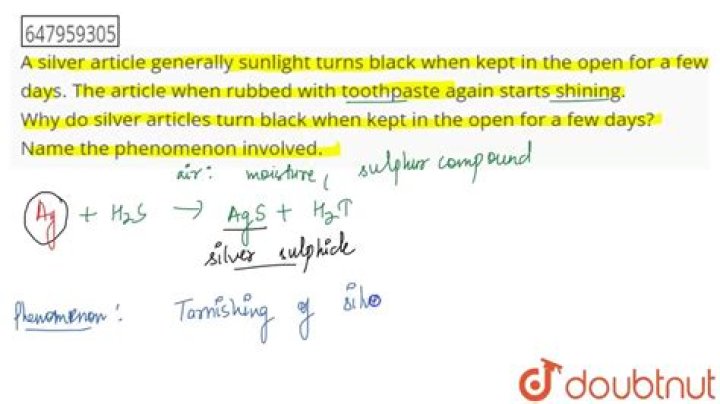 647959305
A silver article generally sunlight turns black when kept in the open for a few
days. The article when rubbed with toothpaste again starts shining.
Why do silver articles turn black when kept in the open for a few days?
Name the phenomenon involved.
air: moisture, sulphur compound
Ag + H2S → AgS + H2↑
silver sulphide
Phenomenon: Tarnishing of silve
doubtnut